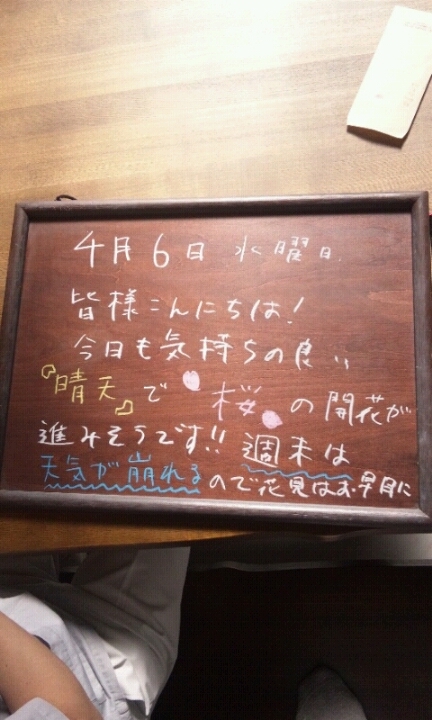 4月6日 水曜日.
皆様こんにちは!
今日も気持ちの良い
『晴天』で 桜 の開花が
進みそうです!! 週末は
天気が崩れるので花見はお早目に